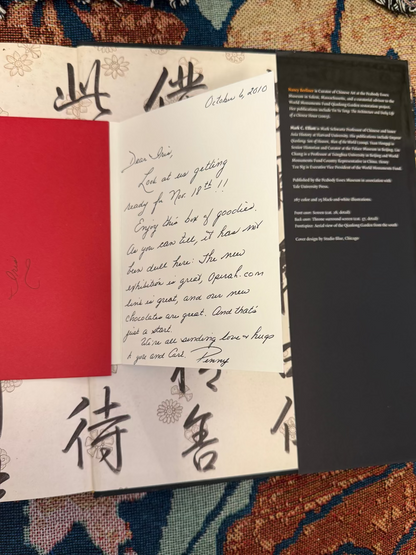 此
僕
October 6, 2010
Dear Iris,
Look at us getting
ready for Nov. 18th !!
Enjoy this box of goodies.
As you can tell, it has not
been dull here: The new
exhibition is great, Oprah.com
line is great, and our new
chocolates are great. And that's
just a start.
We're all sending love + hugs
to you and Carl. Penny
Iris
待
善
Nancy Berliner is Curator of Chinese Art at the Peabody Essex
Museum in Salem, Massachusetts, and a curatorial adviser to the
World Monuments Fund Qianlong Garden restoration project.
Her publications include Yin Yu Tang: The Architecture and Daily Life
of a Chinese House (2003).
Mark C. Elliott is Mark Schwartz Professor of Chinese and Inner
Asia History at Harvard University. His publications include Emperor
Qianlong: Son of Heaven, Man of the World. Yuan Hongqi is
Senior Historian and Curator at the Palace Museum in Beijing. Liu
Chang is a Professor at Tsinghua University in Beijing and World
Monuments Fund Country Representative in China. Henry
Tzu Ng is Executive Vice President of the World Monuments Fund.
Published by the Peabody Essex Museum in association with
Yale University Press.
187 color and 25 black-and-white illustrations
Front cover: Screen (cat. 28, detail)
Back cover: Throne surround screen (cat. 37, detail)
Frontispiece: Aerial view of the Qianlong Garden from the south
Cover design by Studio Blue, Chicago